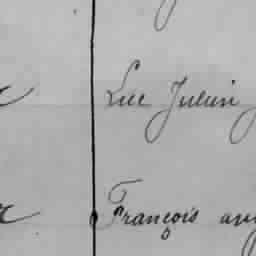 Luc Julien
François